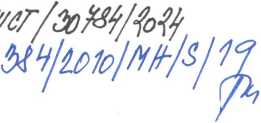 UCT/30784/2024
384/2010/MH/S/19